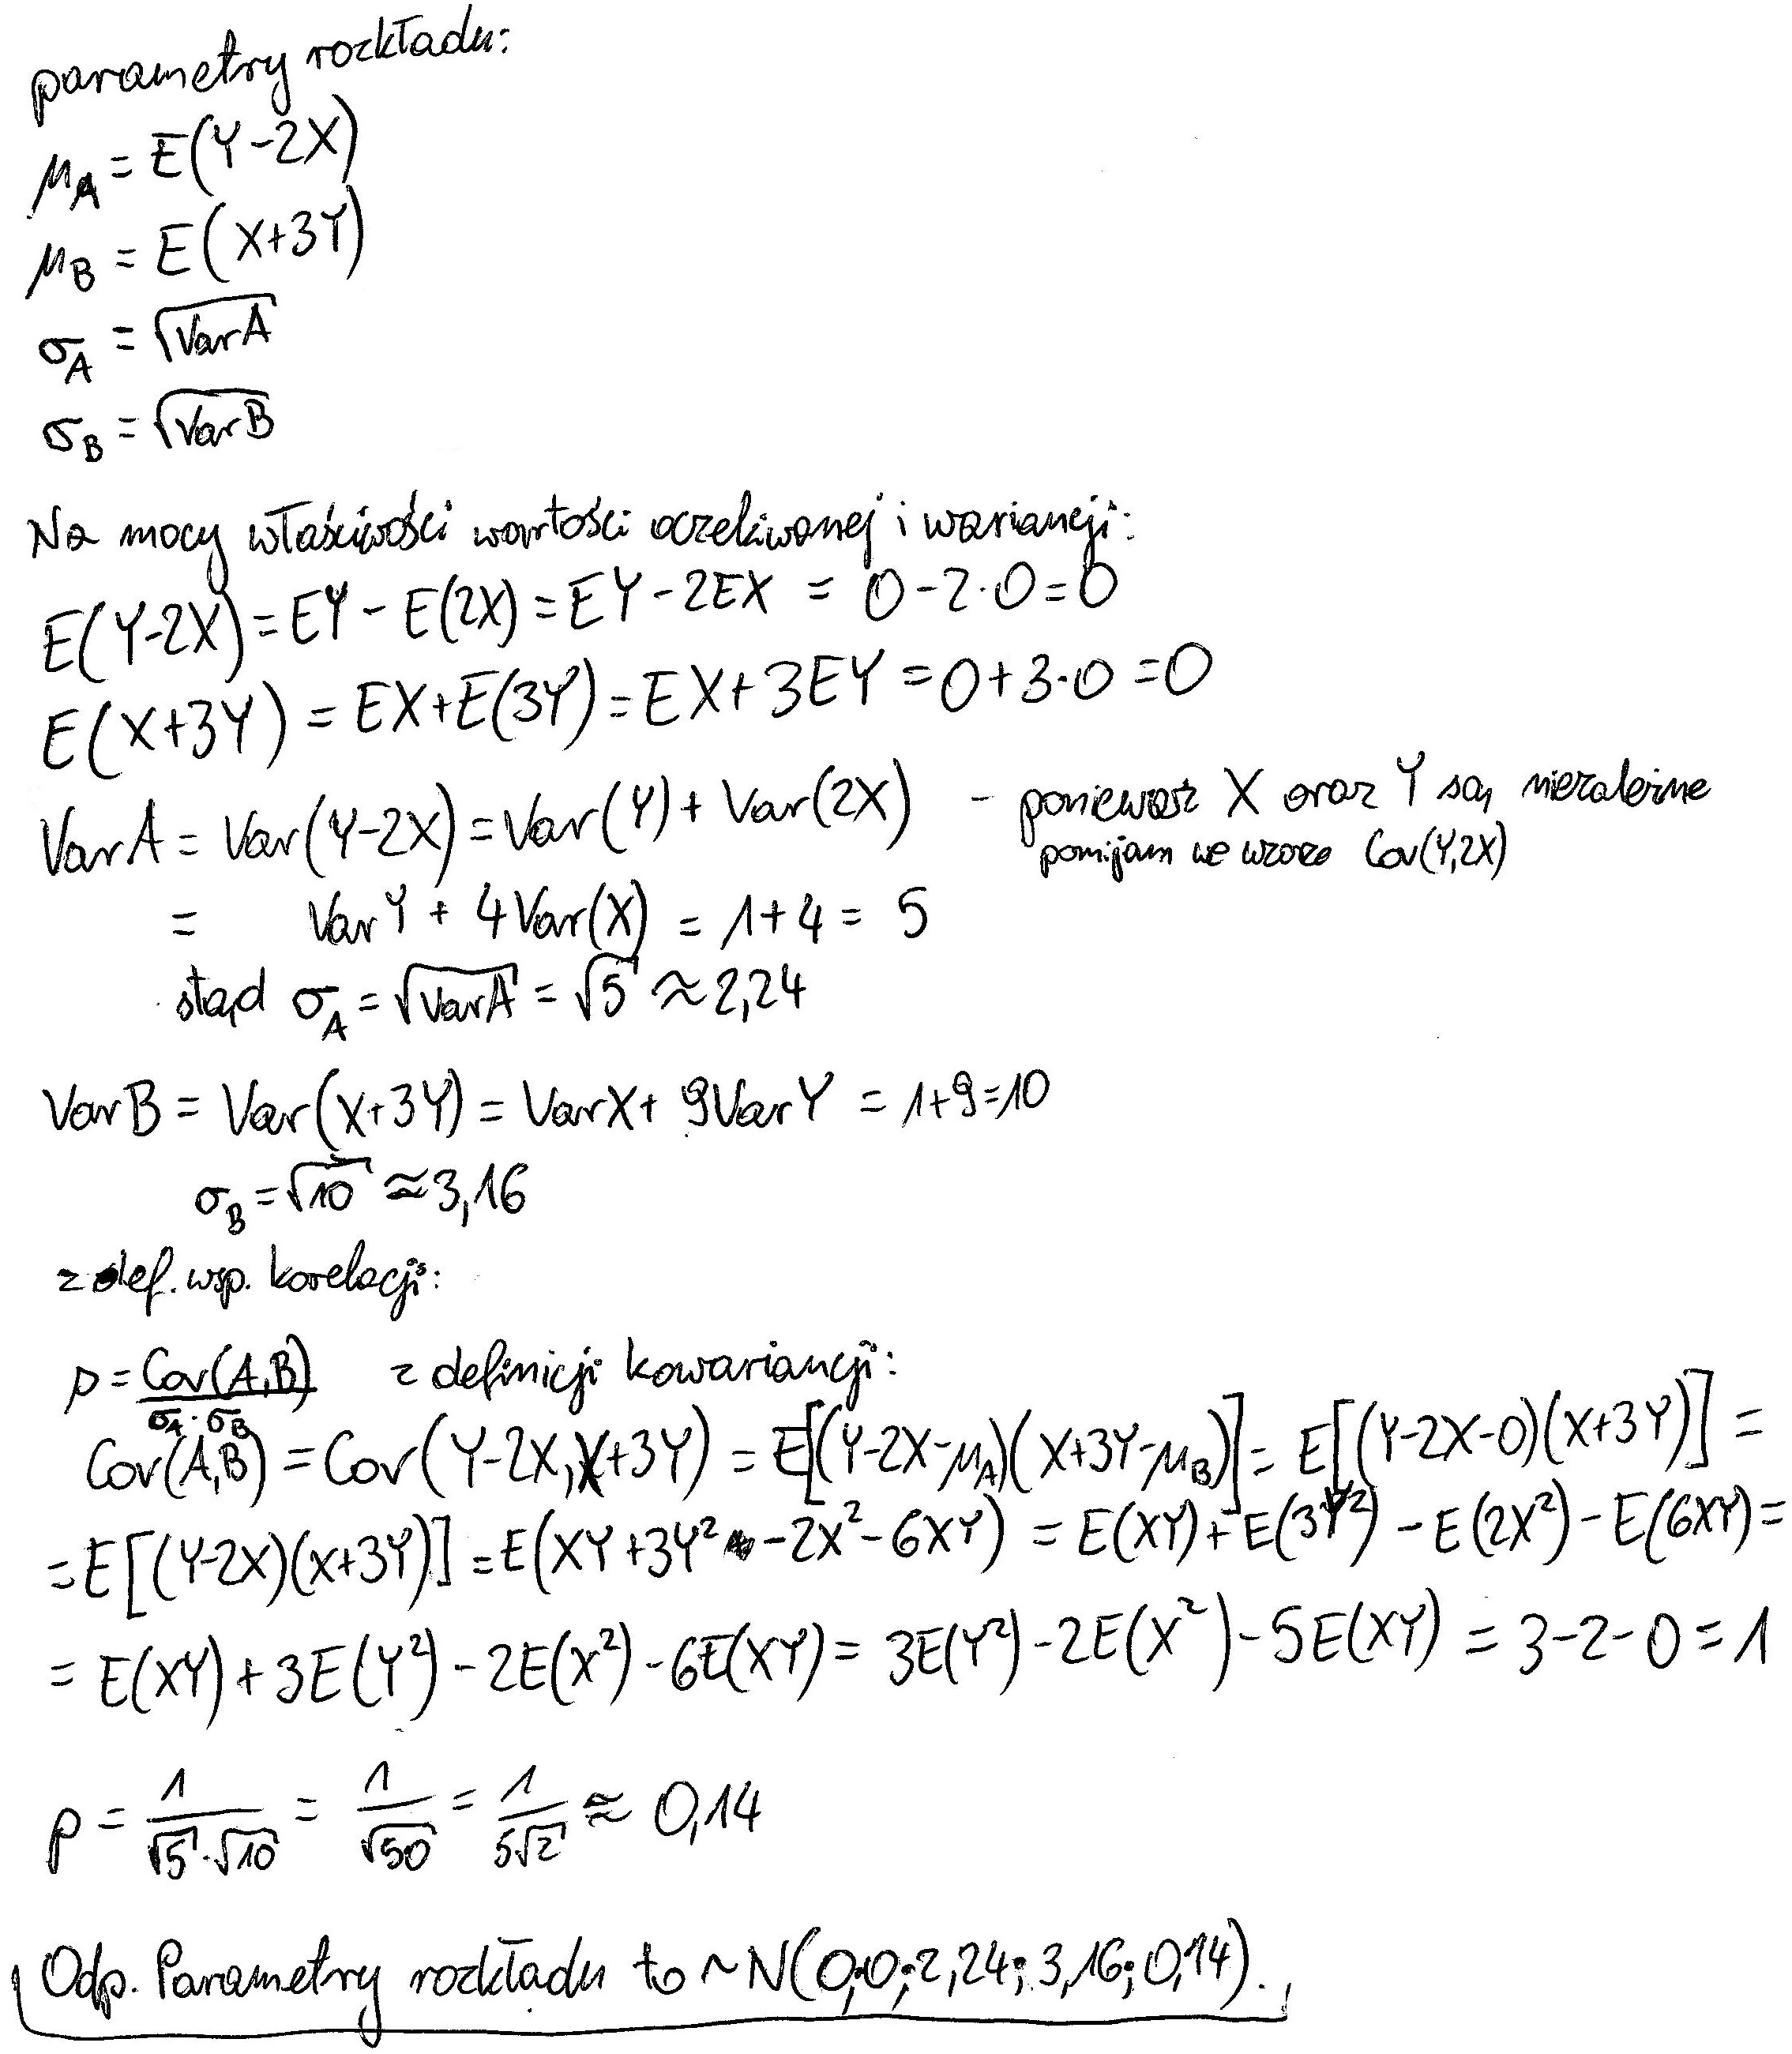 parametry rozkładu:
μ_A = E(Y-2X)
μ_B = E(X+3Y)
σ_A = √VarA
σ_B = √VarB
Na mocy właściwości wartości oczekiwanej i wariancji:
E(Y-2X) = EY - E(2X) = EY - 2EX = 0 - 2·0 = 0
E(X+3Y) = EX + E(3Y) = EX + 3EY = 0 + 3·0 = 0
VarA = Var(Y-2X) = Var(Y) + Var(2X) - ponieważ X oraz Y są niezależne
pomijam we wzorze Cov(Y,2X)
= VarY + 4Var(X) = 1+4 = 5
stąd σ_A = √VarA = √5 ≈ 2,24
VarB = Var(X+3Y) = VarX + 9VarY = 1+9=10
σ_B = √10 ≈ 3,16
z def. wsp. korelacji:
ρ = Cov(A,B)/(σ_A·σ_B) z definicji kowariancji:
Cov(A,B) = Cov(Y-2X, X+3Y) = E[(Y-2X-μ_A)(X+3Y-μ_B)] = E[(Y-2X-0)(X+3Y)] =
= E[(Y-2X)(X+3Y)] = E(XY + 3Y² - 2X² - 6XY) = E(XY) + E(3Y²) - E(2X²) - E(6XY) =
= E(XY) + 3E(Y²) - 2E(X²) - 6E(XY) = 3E(Y²) - 2E(X²) - 5E(XY) = 3-2-0 = 1
ρ = 1/(√5·√10) = 1/√50 = 1/(5√2) ≈ 0,14
Odp. Parametry rozkładu to ~N(0;0;2,24;3,16;0,14).